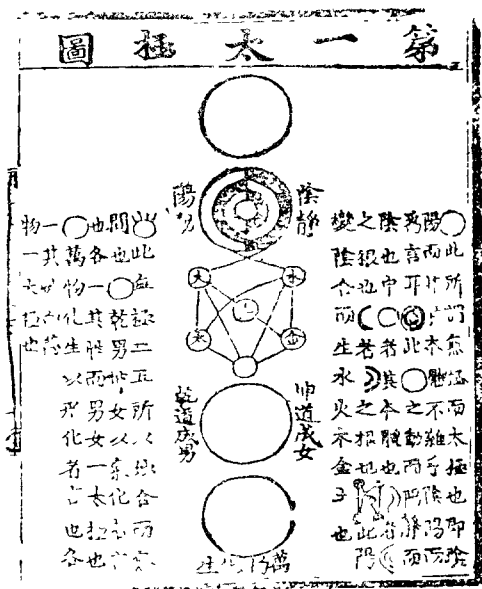 第一太極圖
陰靜
陽動
水
火
土
金
木
坤道成女
乾道成男
萬物化生
○此所謂無極而太極也即陰
陽而指其本體不雜乎陰陽而
爲言耳◎此○之動而陽靜而
陰也中○者其本體也
之根也者之根也此陽
變陰合而生水火木金土也
此無極二五所以妙合而無
間也○乾男坤女以氣化者言
也各一其性而男女一太極也
○萬物化生以形化者言也各
一其性而萬
物一大極也